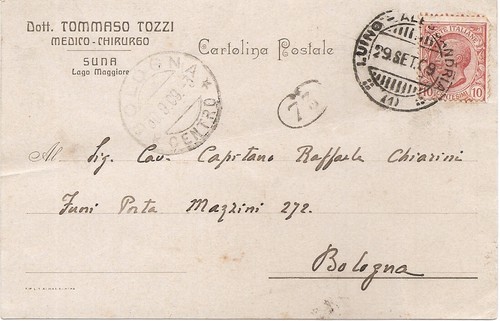 Dott. TOMMASO TOZZI
MEDICO-CHIRURGO
SUNA
Lago Maggiore
Cartolina Postale
BOLOGNA
CENTRO
LUINO - ALESSANDRIA
29.SET.09
(1)
10 10
73
Al Sig. Cav. Capitano Raffaele Chiarini
Fuori Porta Mazzini 272.
Bologna